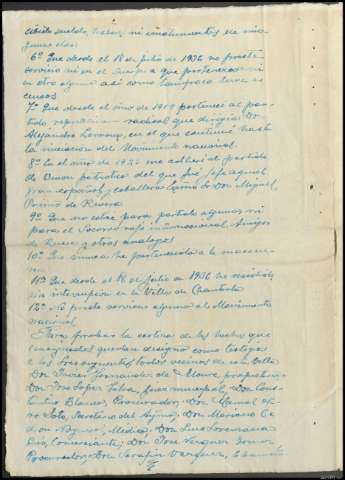 cibido sueldo, haber, ni emolumentos de nin-
guna clase
6º Que desde el 18 de julio de 1936 no prestó
servicio ni en el cuerpo a que pertenecia ni
en otro alguno asi como tampoco tuvo as-
censos
7º Que desde el año de 1919 perteneci al par-
tido republicano radical que dirigia Dn
Alejandro Lerroux, en el que continué hasta
la iniciacion del Movimiento nacional.
8º En el año de 1926 me adheri al partido
de Union patriotica del que fue Jefe aquel
gran español y caballero Excmo Sr Don Miguel
Primo de Rivera
9º Que no cotice para partido alguno ni
para el Socorro rojo internacional, Amigos
de Rusia y otros analogos
10º Que nunca he pertenecido a la masone-
ria
11º Que desde el 18 de Julio de 1936 he residido
sin interrupcion en la Villa de Chantada
12º No preste servicio alguno al Movimiento
nacional
Para probar la certeza de los hechos que
consignados quedan designo como testigos
a los Sres siguientes, todos vecinos de esta Villa
Dn Javier Fernandez de Moure, propietario
Don José Lopez, Juez municipal, Don Cons-
tantino Blanco, Procurador, Don Manuel
Soto, Secretario del Aytmo, Don Mariano
don, Médico, Don Luis Lorenzana
Comerciante, Don José Vazquez Gomez
Procurador, Don Serafin Vazquez,